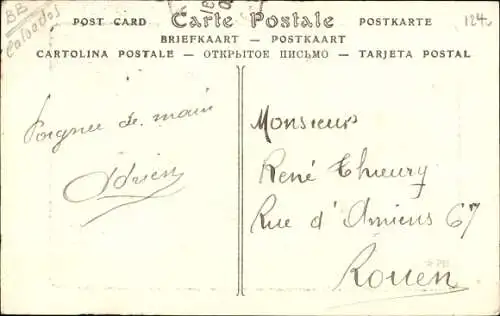 BB
Calvados
POST CARD Carte Postale POSTKARTE
124
BRIEFKAART — POSTKAART
CARTOLINA POSTALE — ОТКРЫТОЕ ПИСЬМО — TARJETA POSTAL
Poignée de main
Adrien
Monsieur
René Thieury
Rue d'Amiens 67
Rouen